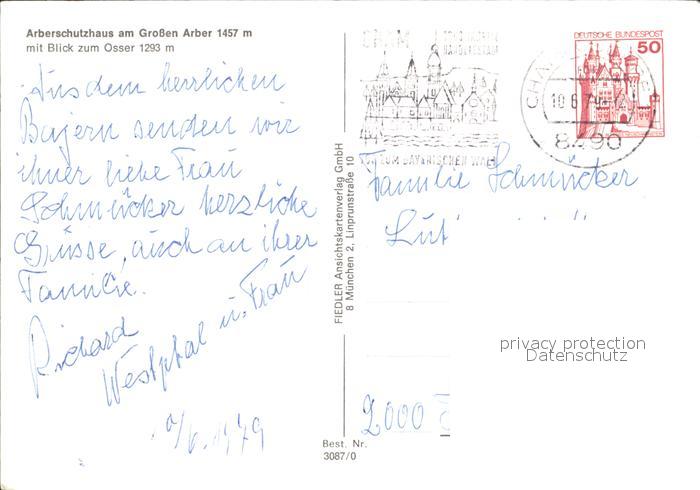 Arberschutzhaus am Großen Arber 1457 m
mit Blick zum Osser 1293 m
Aus dem herrlichen
Bayern senden wir
ihnen liebe Frau
Schmücker herzliche
Grüsse, auch an ihrer
Familie.
Richard
Westphal u. Frau
6.1979
FIEDLER Ansichtskartenverlag GmbH
8 München 2, Linprunstraße 10
Best. Nr.
3087/0
CHAM
ZUM BAYERISCHEN WALD
DEUTSCHE BUNDESPOST
50
CHAM
10.6.79
8490
Familie Schmücker
Lüt
2000
privacy protection
Datenschutz